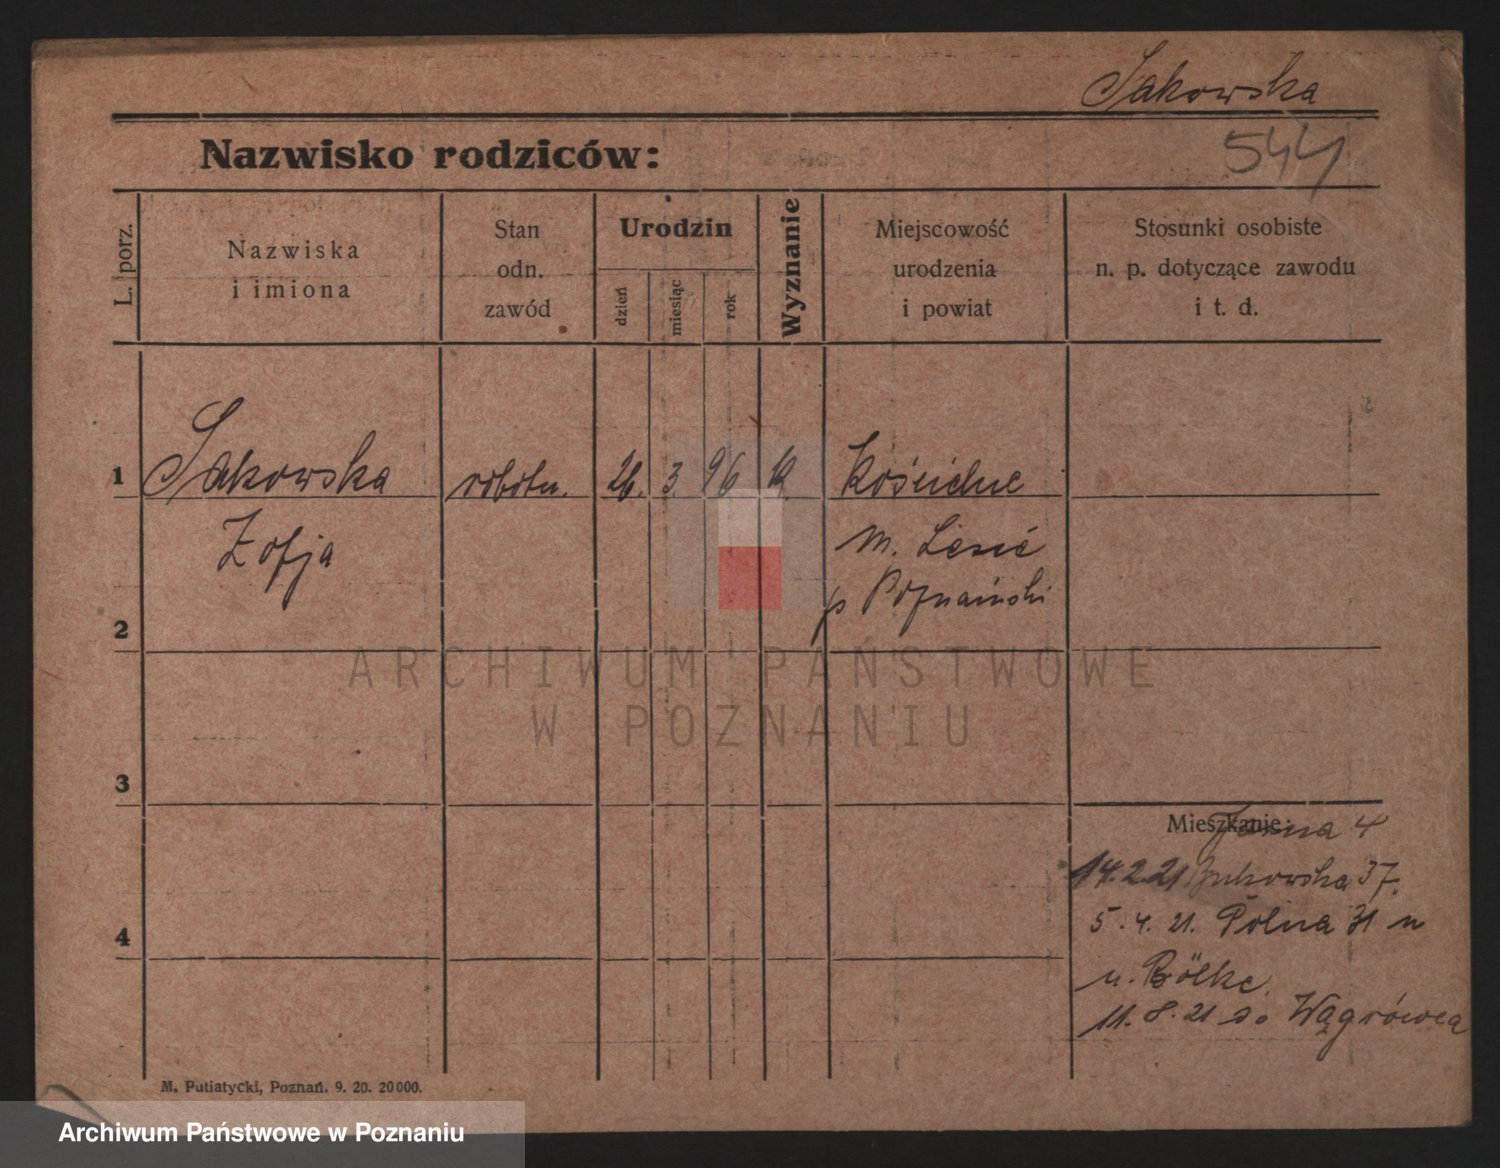 Sakowska
544
Nazwisko rodziców:
L. porz.
Nazwiska
i imiona
Stan
odn.
zawód
Urodzin
dzień
miesiąc
rok
Wyznanie
Miejscowość
urodzenia
i powiat
Stosunki osobiste
n. p. dotyczące zawodu
i t. d.
1
Sakowska robotn. 26. 3. 96 k.
Zofja
p Poznański
2
3
4
Mieszkanie:
4
14.2.21 Bukowska 37.
5.4.21. Polna 31
u. Bölke.
11.8.21 do Wągrówca
M. Putiatycki, Poznań. 9. 20. 20000.
ARCHIWUM PAŃSTWOWE
W POZNANIU
Archiwum Państwowe w Poznaniu